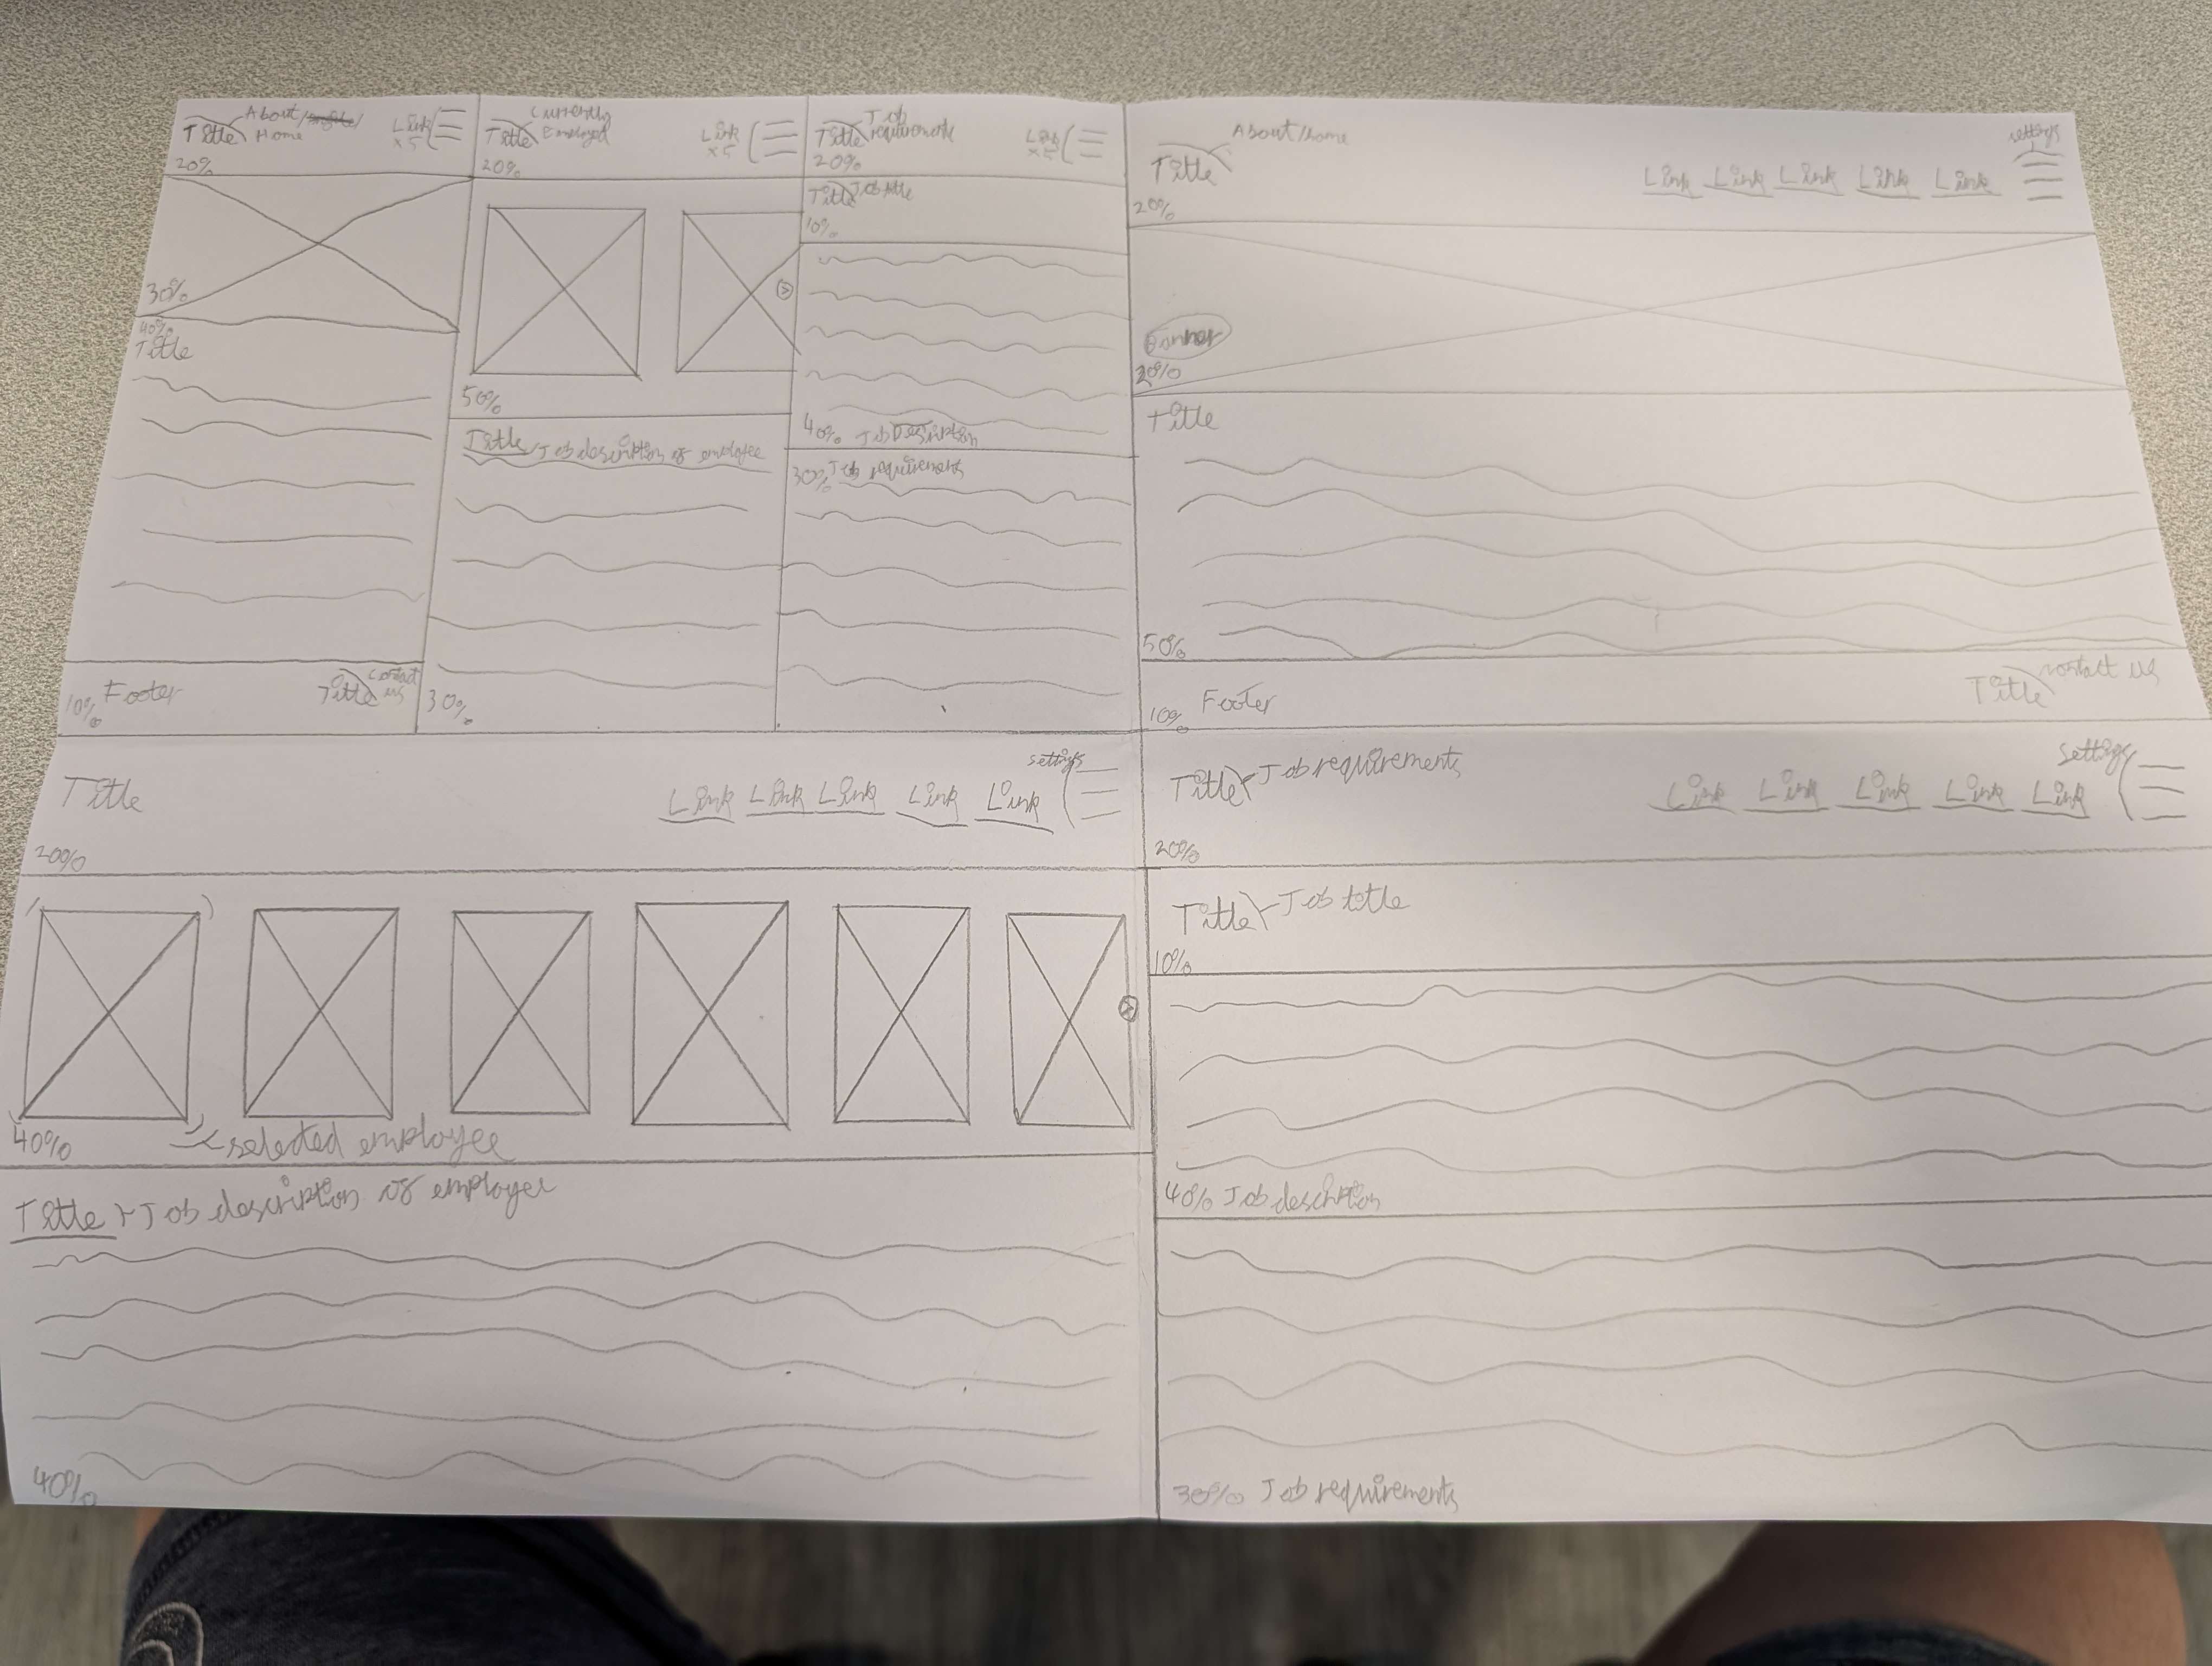 About/
Title Home
Link
x5
20%
30%
40%
Title
10% Footer
Title contact
us
Currently
Title Employed
Link
x5
20%
50%
Title Job description of employee
30%
Job
Title requirements
Link
x5
20%
Title Job title
10%
40% Job Description
30% Job requirements
About/home
Title
settings
Link Link Link Link Link
20%
Banner
20%
Title
50%
10% Footer
Title contact us
Title
settings
Link Link Link Link Link
20%
40%
selected employee
Title Job description of employee
40%
Title Job requirements
settings
Link Link Link Link Link
20%
Title Job title
10%
40% Job description
30% Job requirements